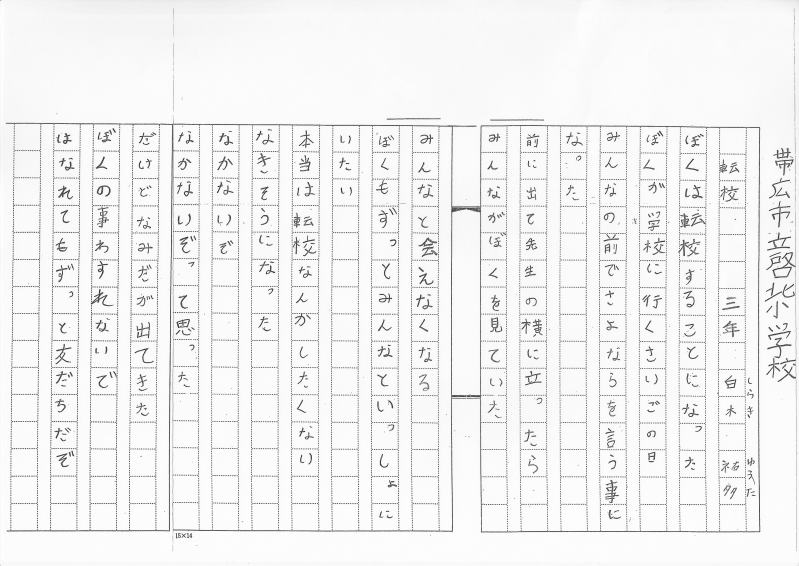 帯広市立啓北小学校
転校 三年 白木 祐多
しらき ゆうた
ぼくは転校することになった
ぼくが学校に行くさいごの日
みんなの前でさよならを言う事に
なった
前に出て先生の横に立ったら
みんながぼくを見ていた
みんなと会えなくなる
ぼくもずっとみんなといっしょに
いたい
本当は転校なんかしたくない
なきそうになった
なかないぞ
なかないぞって思った
だけどなみだが出てきた
ぼくの事わすれないで
はなれてもずっと友だちだぞ
15×14